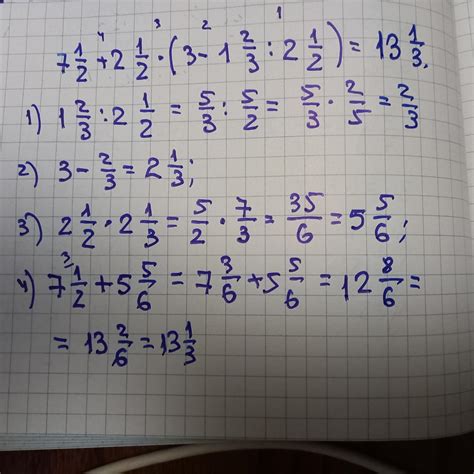 4 3 2 1
7 1/2 + 2 1/2 · (3 - 1 2/3 : 2 1/2) = 13 1/3,
1) 1 2/3 : 2 1/2 = 5/3 : 5/2 = 5/3 · 2/5 = 2/3
2) 3 - 2/3 = 2 1/3;
3) 2 1/2 · 2 1/3 = 5/2 · 7/3 = 35/6 = 5 5/6;
3
4) 7 1/2 + 5 5/6 = 7 3/6 + 5 5/6 = 12 8/6 =
= 13 2/6 = 13 1/3